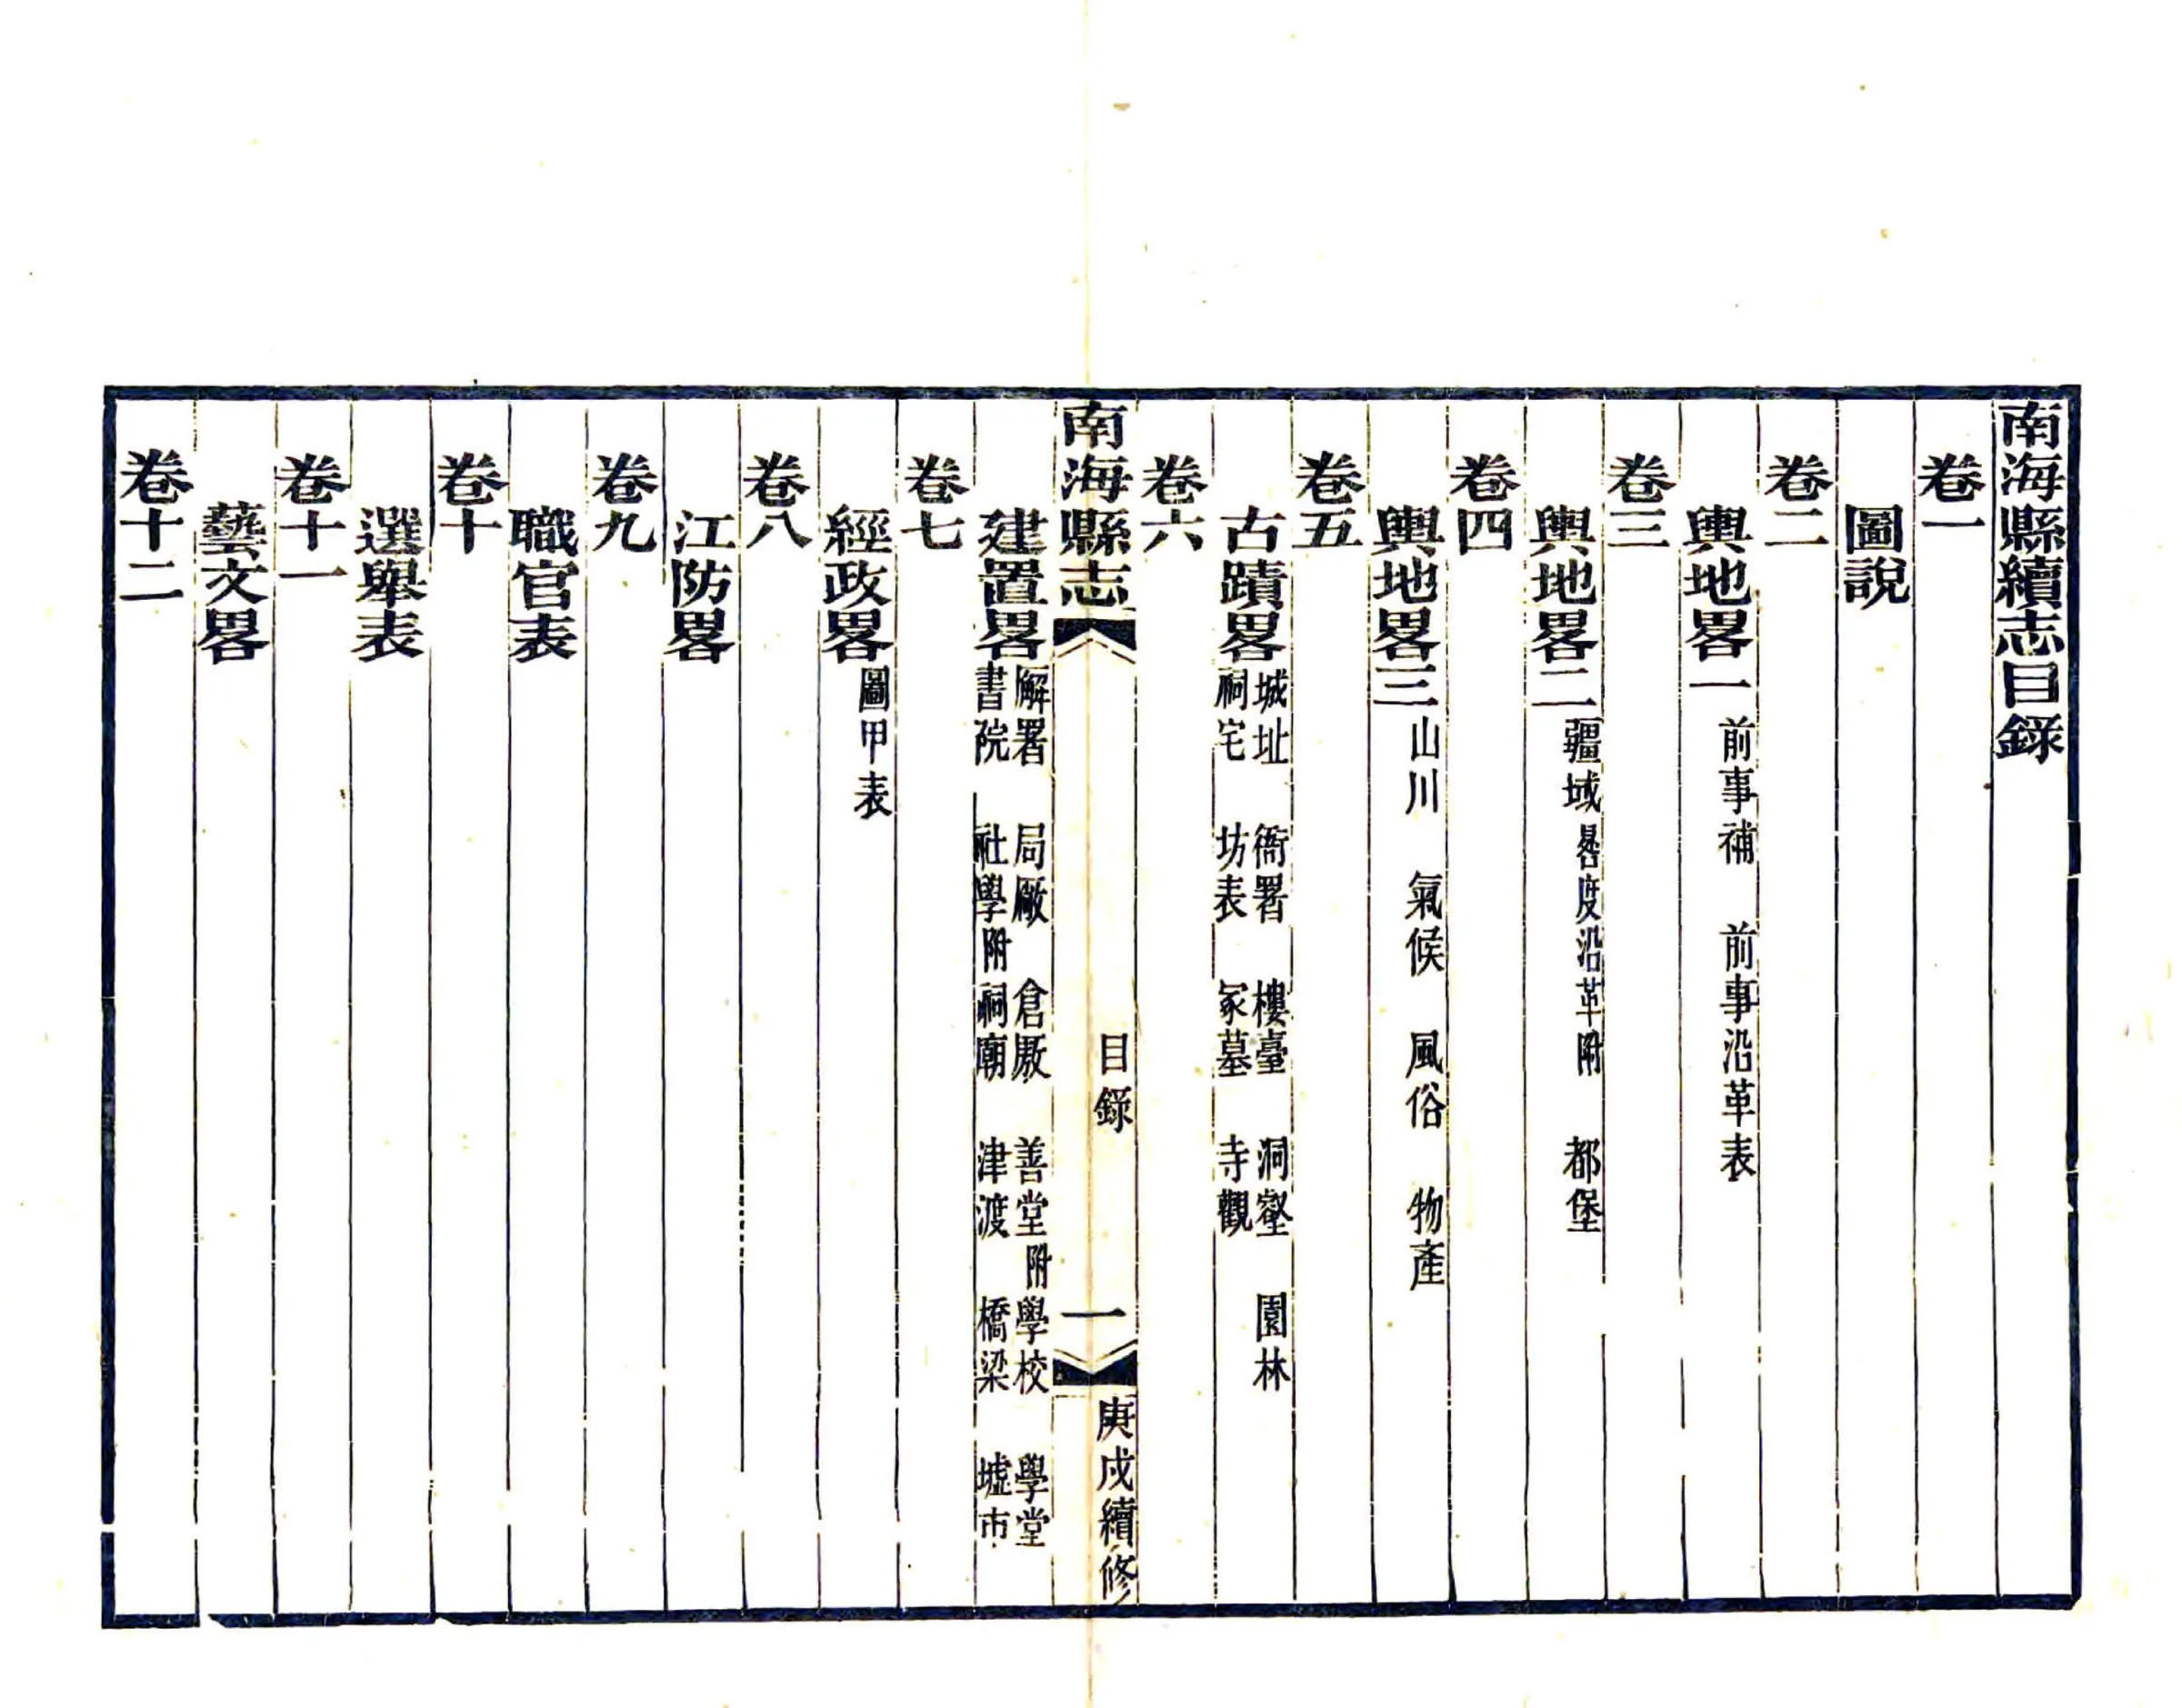 南海縣續志目錄
卷一
圖說
卷二
輿地畧一 前事補 前事沿革表
卷三
輿地畧二 疆域 晷度沿革附 都堡
卷四
輿地畧三 山川 氣候 風俗 物產
卷五
古蹟畧 城址 衙署 樓臺 洞壑 園林
祠宅 坊表 冢墓 寺觀
卷六
南海縣志 目錄 一 庚戌續修
建置畧 廨署 局廠 倉厫 善堂附 學校 學堂
書院 社學附 祠廟 津渡 橋梁 墟市
卷七
經政畧 圖甲表
卷八
江防畧
卷九
職官表
卷十
選舉表
卷十一
藝文畧
卷十二